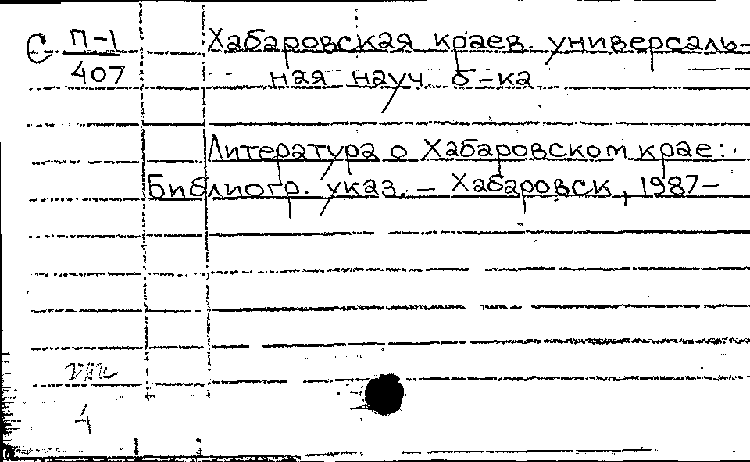 С П-1 Хабаровская краев. универсаль-
407 ная науч б-ка
Литература о Хабаровском крае:
Библиогр. указ. – Хабаровск, 1987–